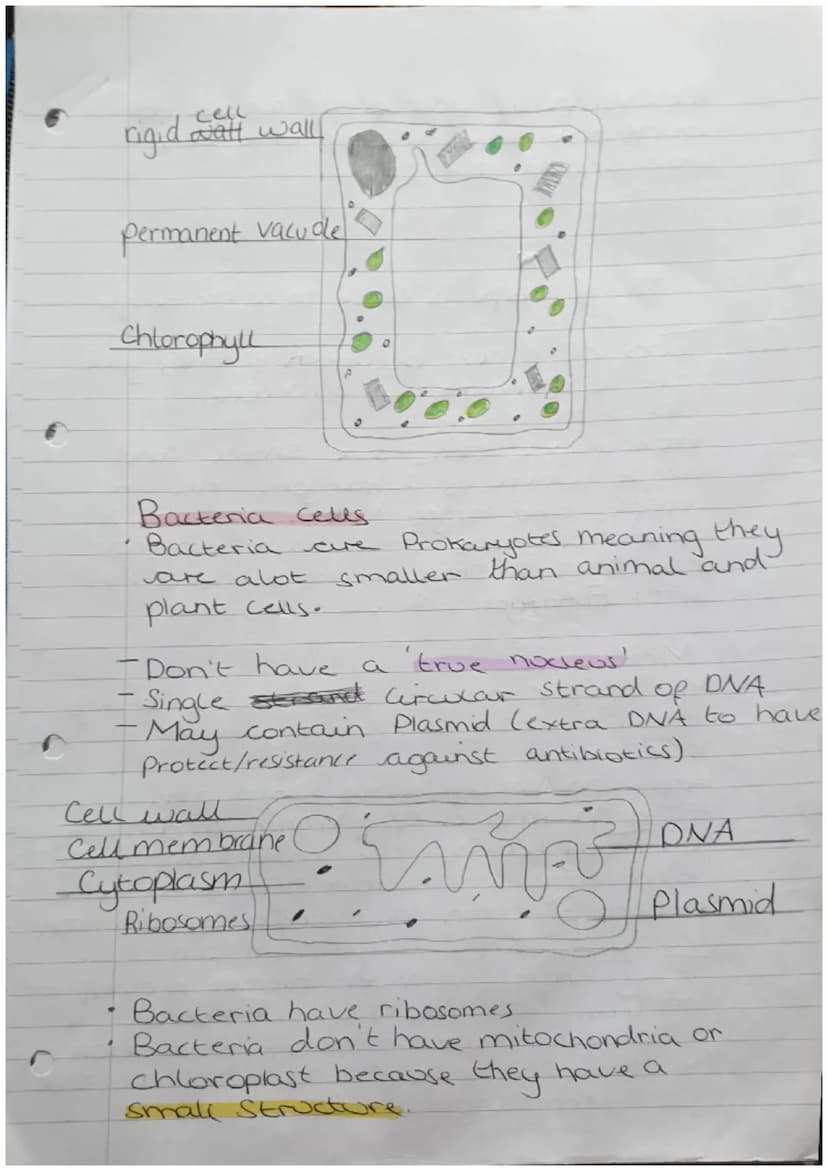 cell
rigid wall wall
permanent vacuole
Chlorophyll
Bacteria cells
· Bacteria are Prokaryotes meaning they
are alot smaller than animal and
plant cells.
- Don't have a 'true nucleus'
- Single strand circular strand of DNA
- May contain Plasmid (extra DNA to have
protect/resistance against antibiotics)
Cell wall
Cell membrane
DNA
Cytoplasm
Plasmid
Ribosomes
· Bacteria have ribosomes
· Bacteria don't have mitochondria or
chloroplast because they have a
small structure.